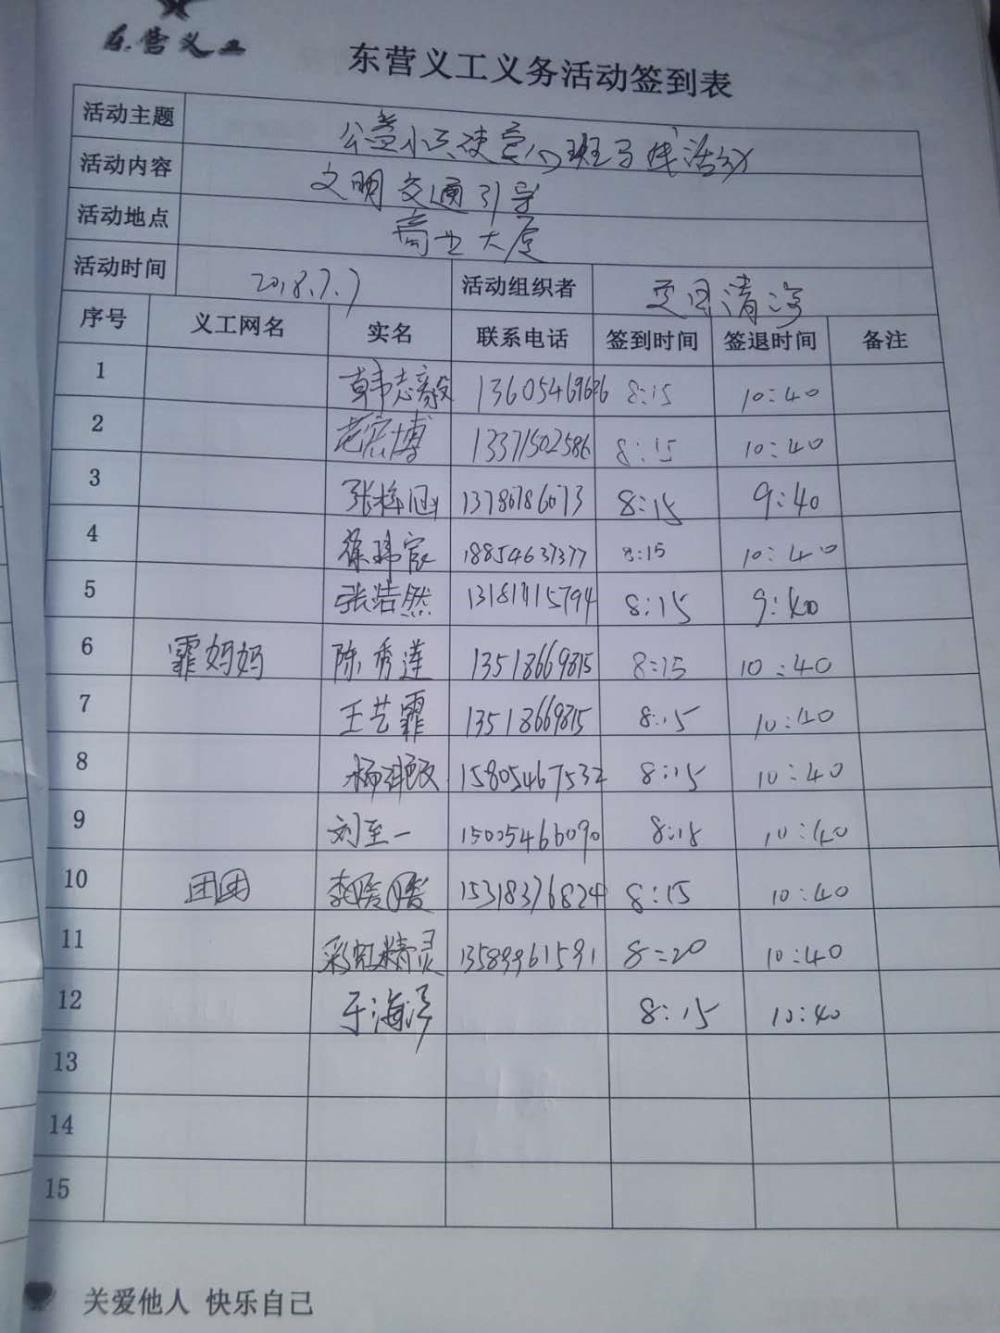 东营义工
东营义工义务活动签到表
活动主题 公益小天使 班 活动
活动内容 文明交通引导
活动地点 商业大厦
活动时间 2018.7.7 活动组织者
序号 义工网名 实名 联系电话 签到时间 签退时间 备注
1 韩志毅 8:15 10:40
2 13371502586 8:15 10:40
3 13780786073 8:15 9:40
4 18854637377 8:15 10:40
5 张浩然 8:15 9:40
6 霏妈妈 陈秀莲 13518669815 8:15 10:40
7 王艺霏 13518669815 8:15 10:40
8 15805467532 8:15 10:40
9 刘至一 15005466090 8:15 10:40
10 团团 李暖暖 15318376824 8:15 10:40
11 彩虹精灵 13589961591 8:20 10:40
12 于海 8:15 10:40
13
14
15
关爱他人 快乐自己